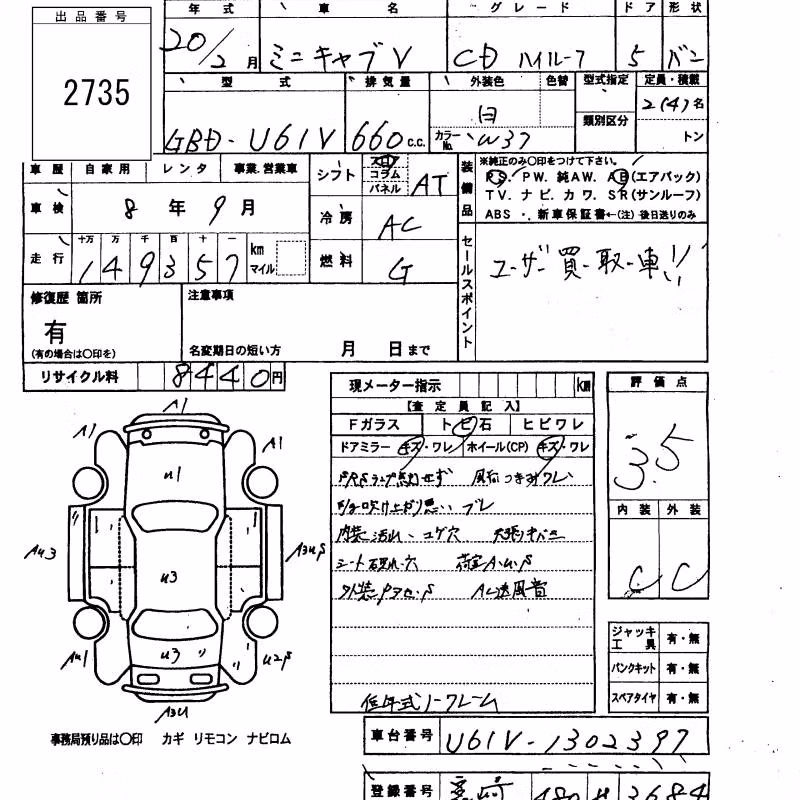 出品番号
2735
年式 車名 グレード ドア 形状
20/2月 ミニキャブV CD ハイルーフ 5 バン
型式 排気量 外装色 色替 型式指定 定員・積載
GBD-U61V 660c.c. 白 カラーNo. W37 類別区分 2(4)名 トン
車歴 自家用 レンタ 事業.営業車
車検 8年9月
走行 十万 万 千 百 十 一 km マイル
149357
シフト フロア コラム パネル AT
冷房 AC
燃料 G
装備品 ※純正のみ〇印をつけて下さい。
PS. PW. 純AW. AB(エアバック)
TV. ナビ. カワ. SR(サンルーフ)
ABS ・. 新車保証書←(注) 後日送りのみ
セールスポイント ユーザー買取車!!
修復歴 箇所
有
(有の場合は〇印を)
注意事項
名変期日の短い方 月 日まで
リサイクル料 8440円
現メーター指示 km
【査定員記入】
Fガラス トビ石 ヒビワレ
ドアミラー キズ・ワレ ホイール(CP) キズ・ワレ
内装汚れ、コゲ穴
評価点
3.5
内装 外装
C C
A1
A1 A1
u1
Au3 A3uS
u3
u3
Au1 u2S
A3u
低年式ノークレーム
ジャッキ工具 有・無
パンクキット 有・無
スペアタイヤ 有・無
事務局預り品は〇印 カギ リモコン ナビロム
車台番号 U61V-1302397
登録番号 宮崎 480 3684